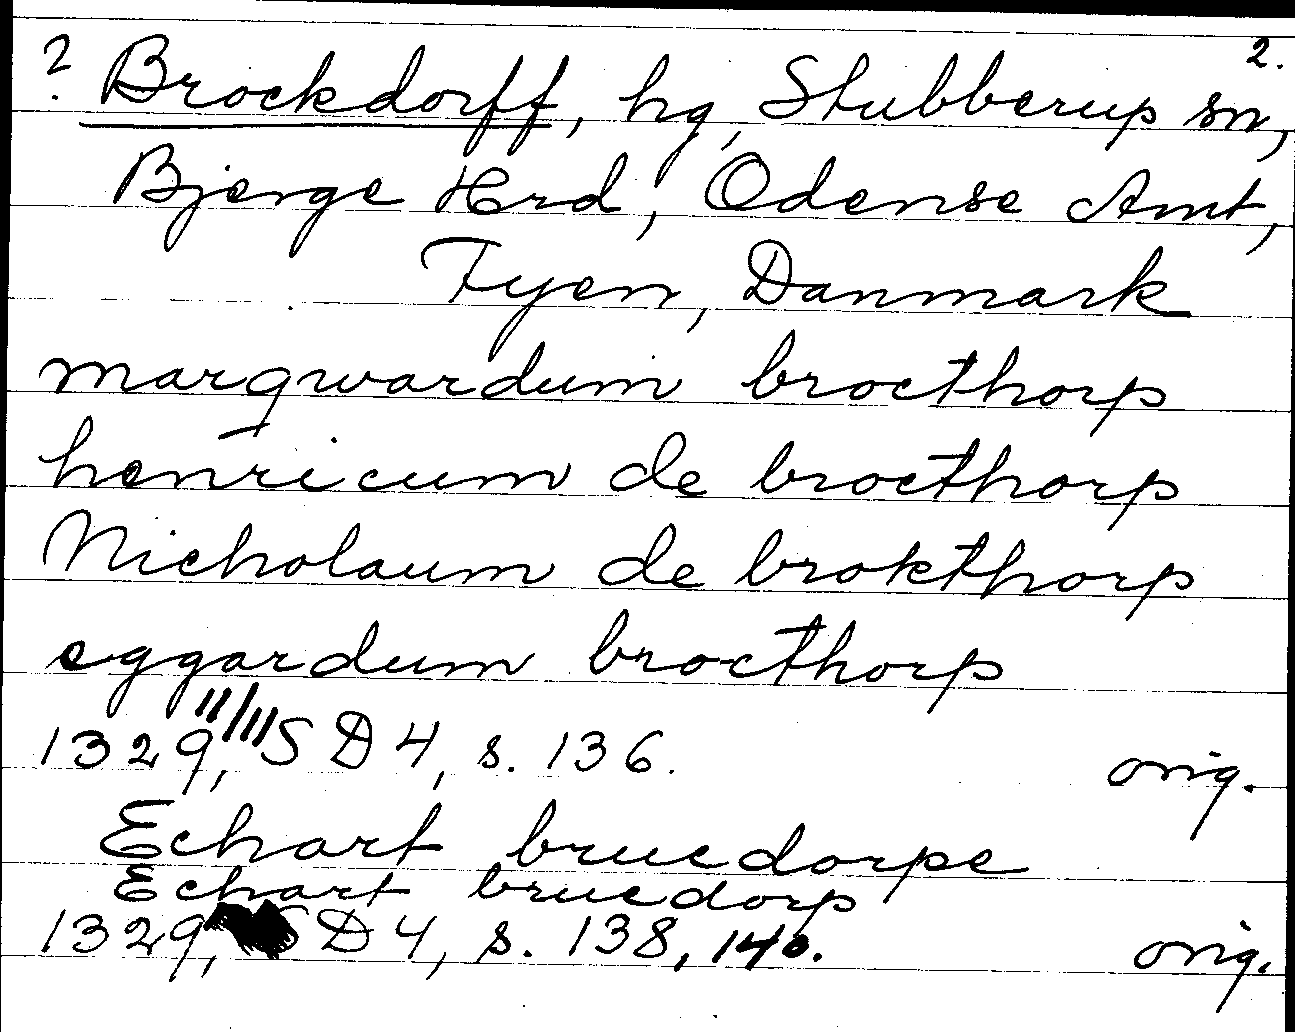 ? Brockdorff, hg, Stubberup sn, 2.
Bjerge Hrd, Odense Amt,
Fyen, Danmark
marqwardum brocthorp
henricum de brocthorp
Nicholaum de brokthorp
eggardum brocthorp
1329, 11/11 SD 4, s. 136. orig.
Echart brucdorpe
Echart brucdorp
1329, SD 4, s. 138, 140. orig.